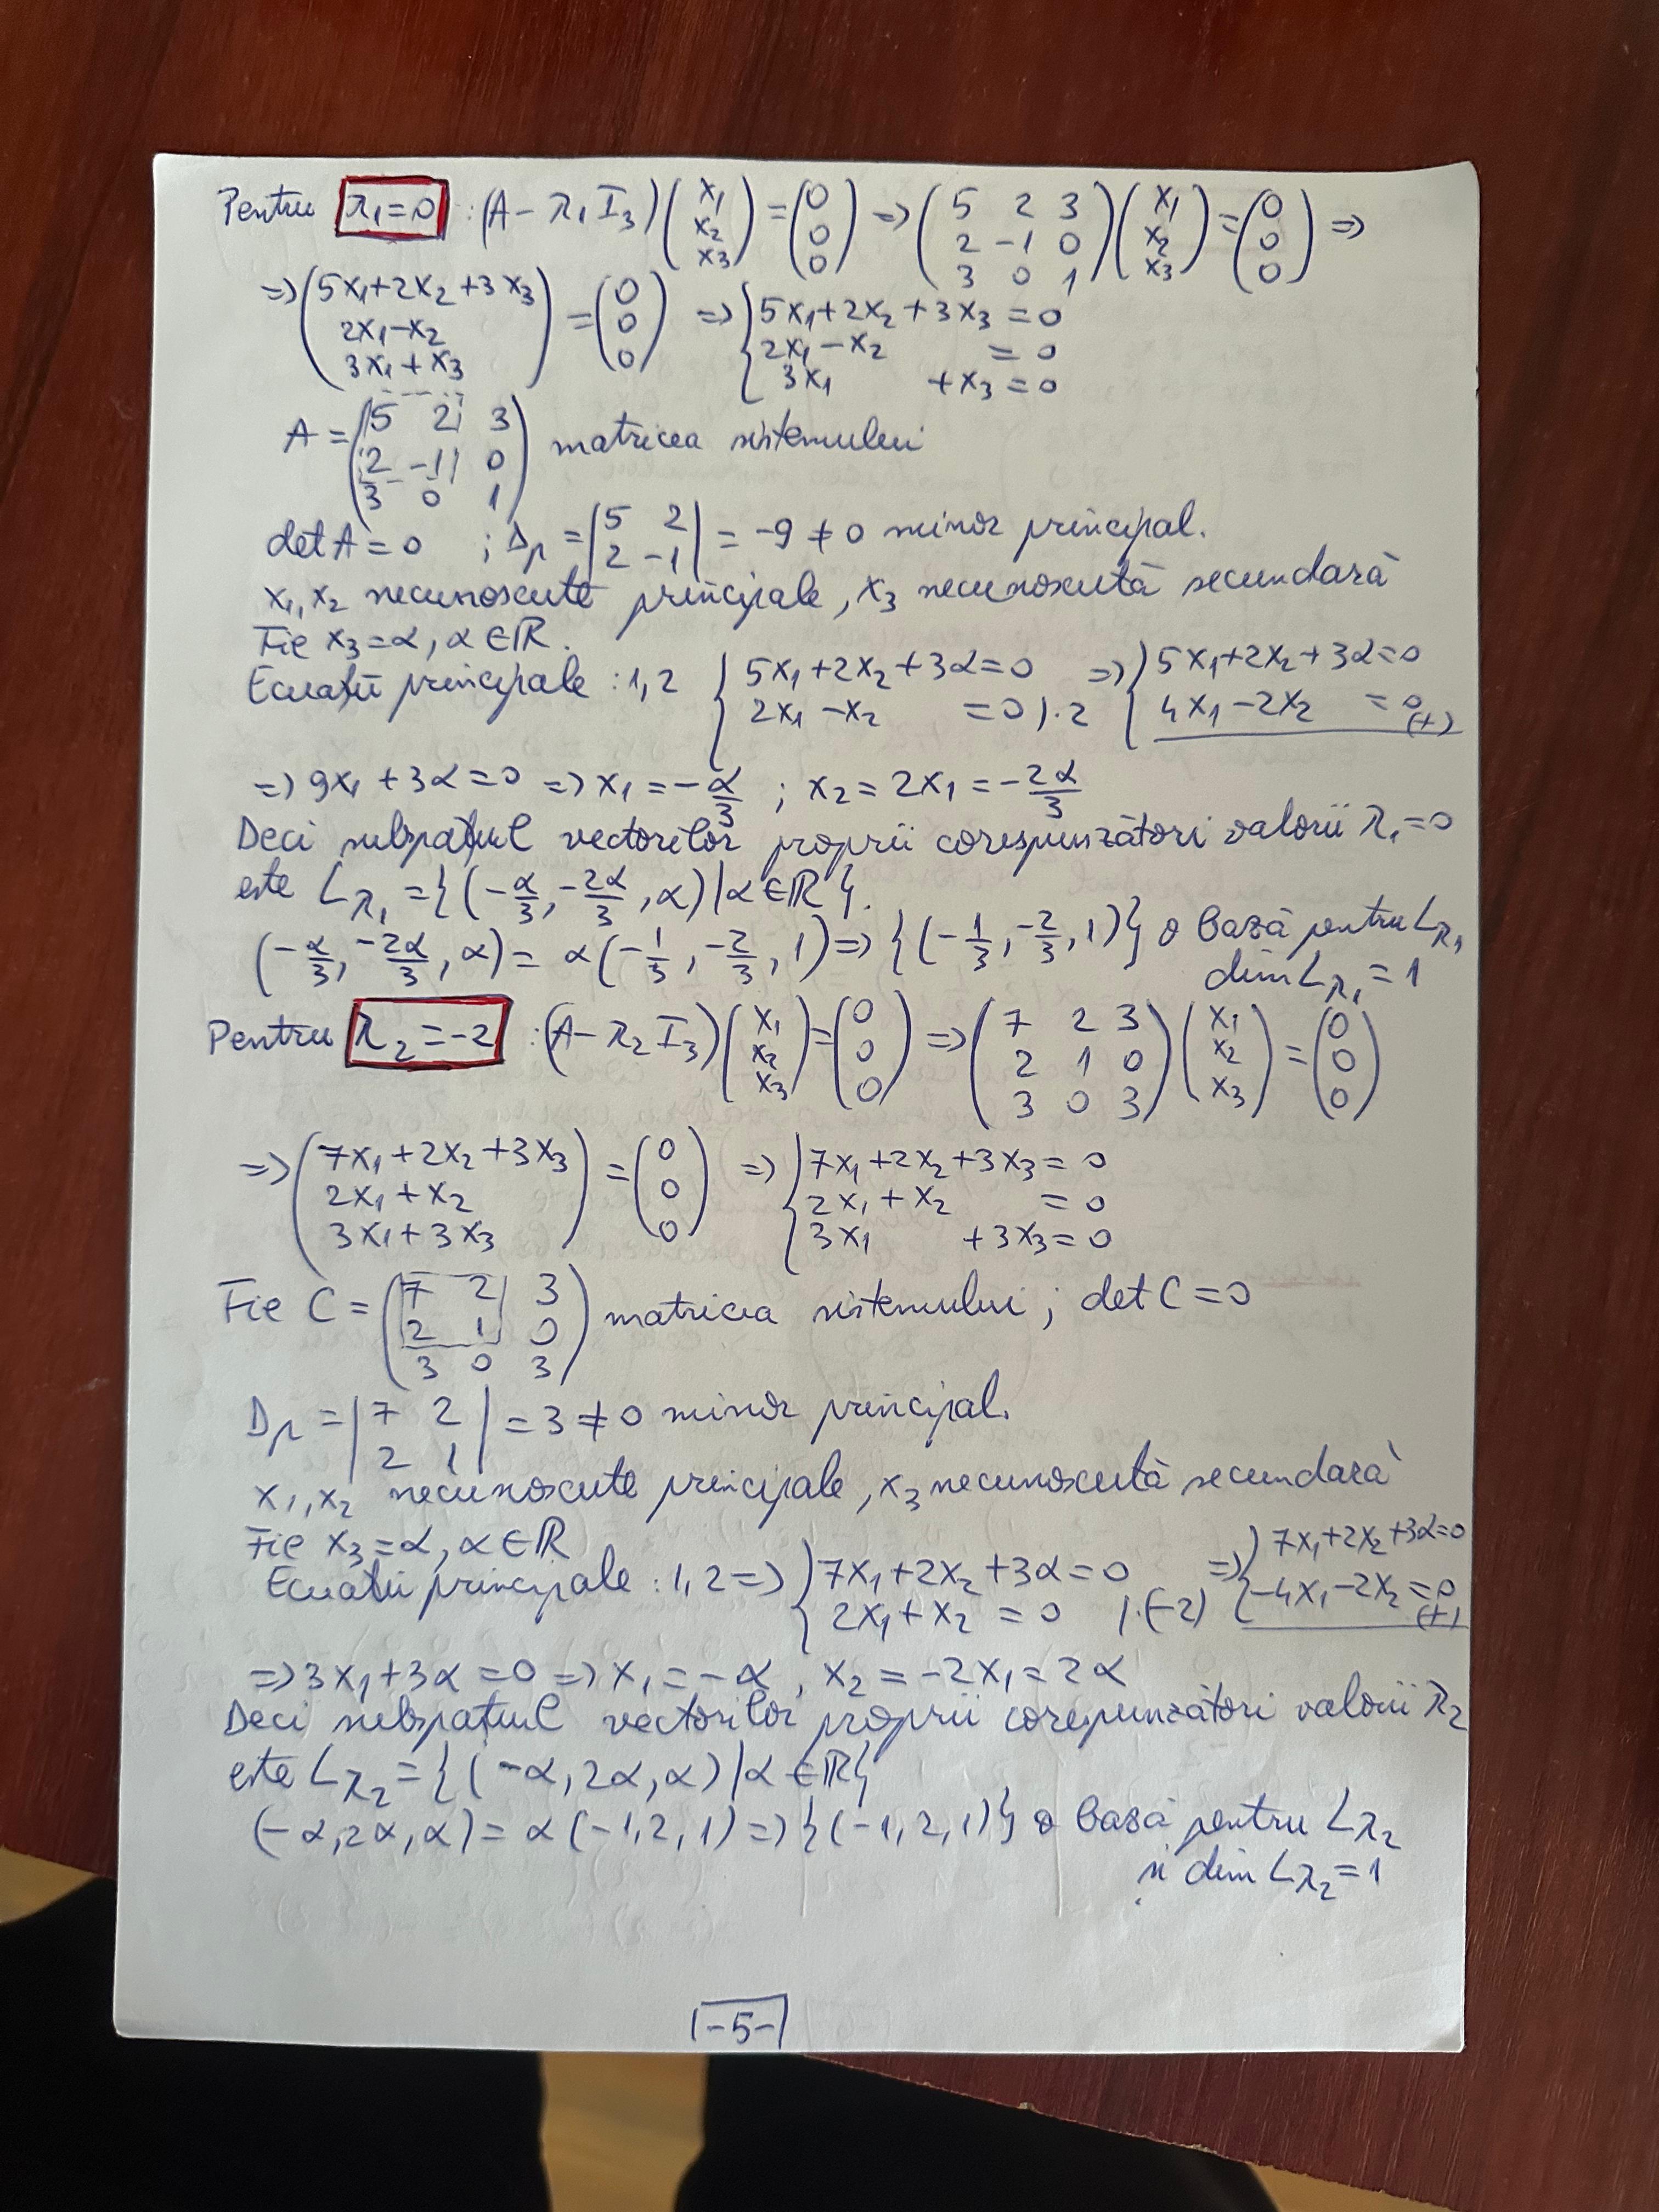 Pentru λ₁=0 : (A-λ₁I₃)(x₁ x₂ x₃) = (0 0 0) => (5 2 3 / 2 -1 0 / 3 0 1)(x₁ x₂ x₃) = (0 0 0) =>
=> (5x₁+2x₂+3x₃ / 2x₁-x₂ / 3x₁+x₃) = (0 0 0) => {5x₁+2x₂+3x₃=0 / 2x₁-x₂ =0 / 3x₁ +x₃=0
A = (5 2 3 / 2 -1 0 / 3 0 1) matricea sistemului
det A = 0 ; Δp = |5 2 / 2 -1| = -9 ≠ 0 minor principal.
x₁, x₂ necunoscute principale, x₃ necunoscută secundară
Fie x₃=α, α∈ℝ.
Ecuații principale : 1,2 {5x₁+2x₂+3α=0 / 2x₁-x₂ =0 |·2 => {5x₁+2x₂+3α=0 / 4x₁-2x₂ =0 (+)
=> 9x₁+3α=0 => x₁=-α/3 ; x₂=2x₁=-2α/3
Deci subspațiul vectorilor proprii corespunzători valorii λ₁=0
este L_λ₁ = {(-α/3, -2α/3, α) | α∈ℝ}.
(-α/3, -2α/3, α) = α(-1/3, -2/3, 1) => {(-1/3, -2/3, 1)} o bază pentru L_λ₁
dim L_λ₁ = 1
Pentru λ₂=-2 : (A-λ₂I₃)(x₁ x₂ x₃) = (0 0 0) => (7 2 3 / 2 1 0 / 3 0 3)(x₁ x₂ x₃) = (0 0 0)
=> (7x₁+2x₂+3x₃ / 2x₁+x₂ / 3x₁+3x₃) = (0 0 0) => {7x₁+2x₂+3x₃=0 / 2x₁+x₂ =0 / 3x₁ +3x₃=0
Fie C = (7 2 3 / 2 1 0 / 3 0 3) matricea sistemului ; det C=0
Δp = |7 2 / 2 1| = 3 ≠ 0 minor principal.
x₁, x₂ necunoscute principale, x₃ necunoscută secundară
Fie x₃=α, α∈ℝ
Ecuații principale : 1,2 => {7x₁+2x₂+3α=0 / 2x₁+x₂=0 |·(-2) => {7x₁+2x₂+3α=0 / -4x₁-2x₂=0 (+)
=> 3x₁+3α=0 => x₁=-α, x₂=-2x₁=2α
Deci subspațiul vectorilor proprii corepunzători valorii λ₂
este L_λ₂ = {(-α, 2α, α) | α∈ℝ}
(-α, 2α, α) = α(-1, 2, 1) => {(-1, 2, 1)} o bază pentru L_λ₂
și dim L_λ₂=1
-5-